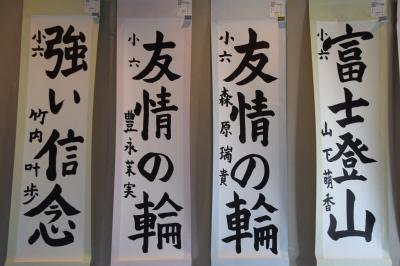 富士登山
小六
山下萌香
友情の輪
小六
森原瑞貴
友情の輪
小六
豊永茉実
強い信念
小六
竹内叶歩